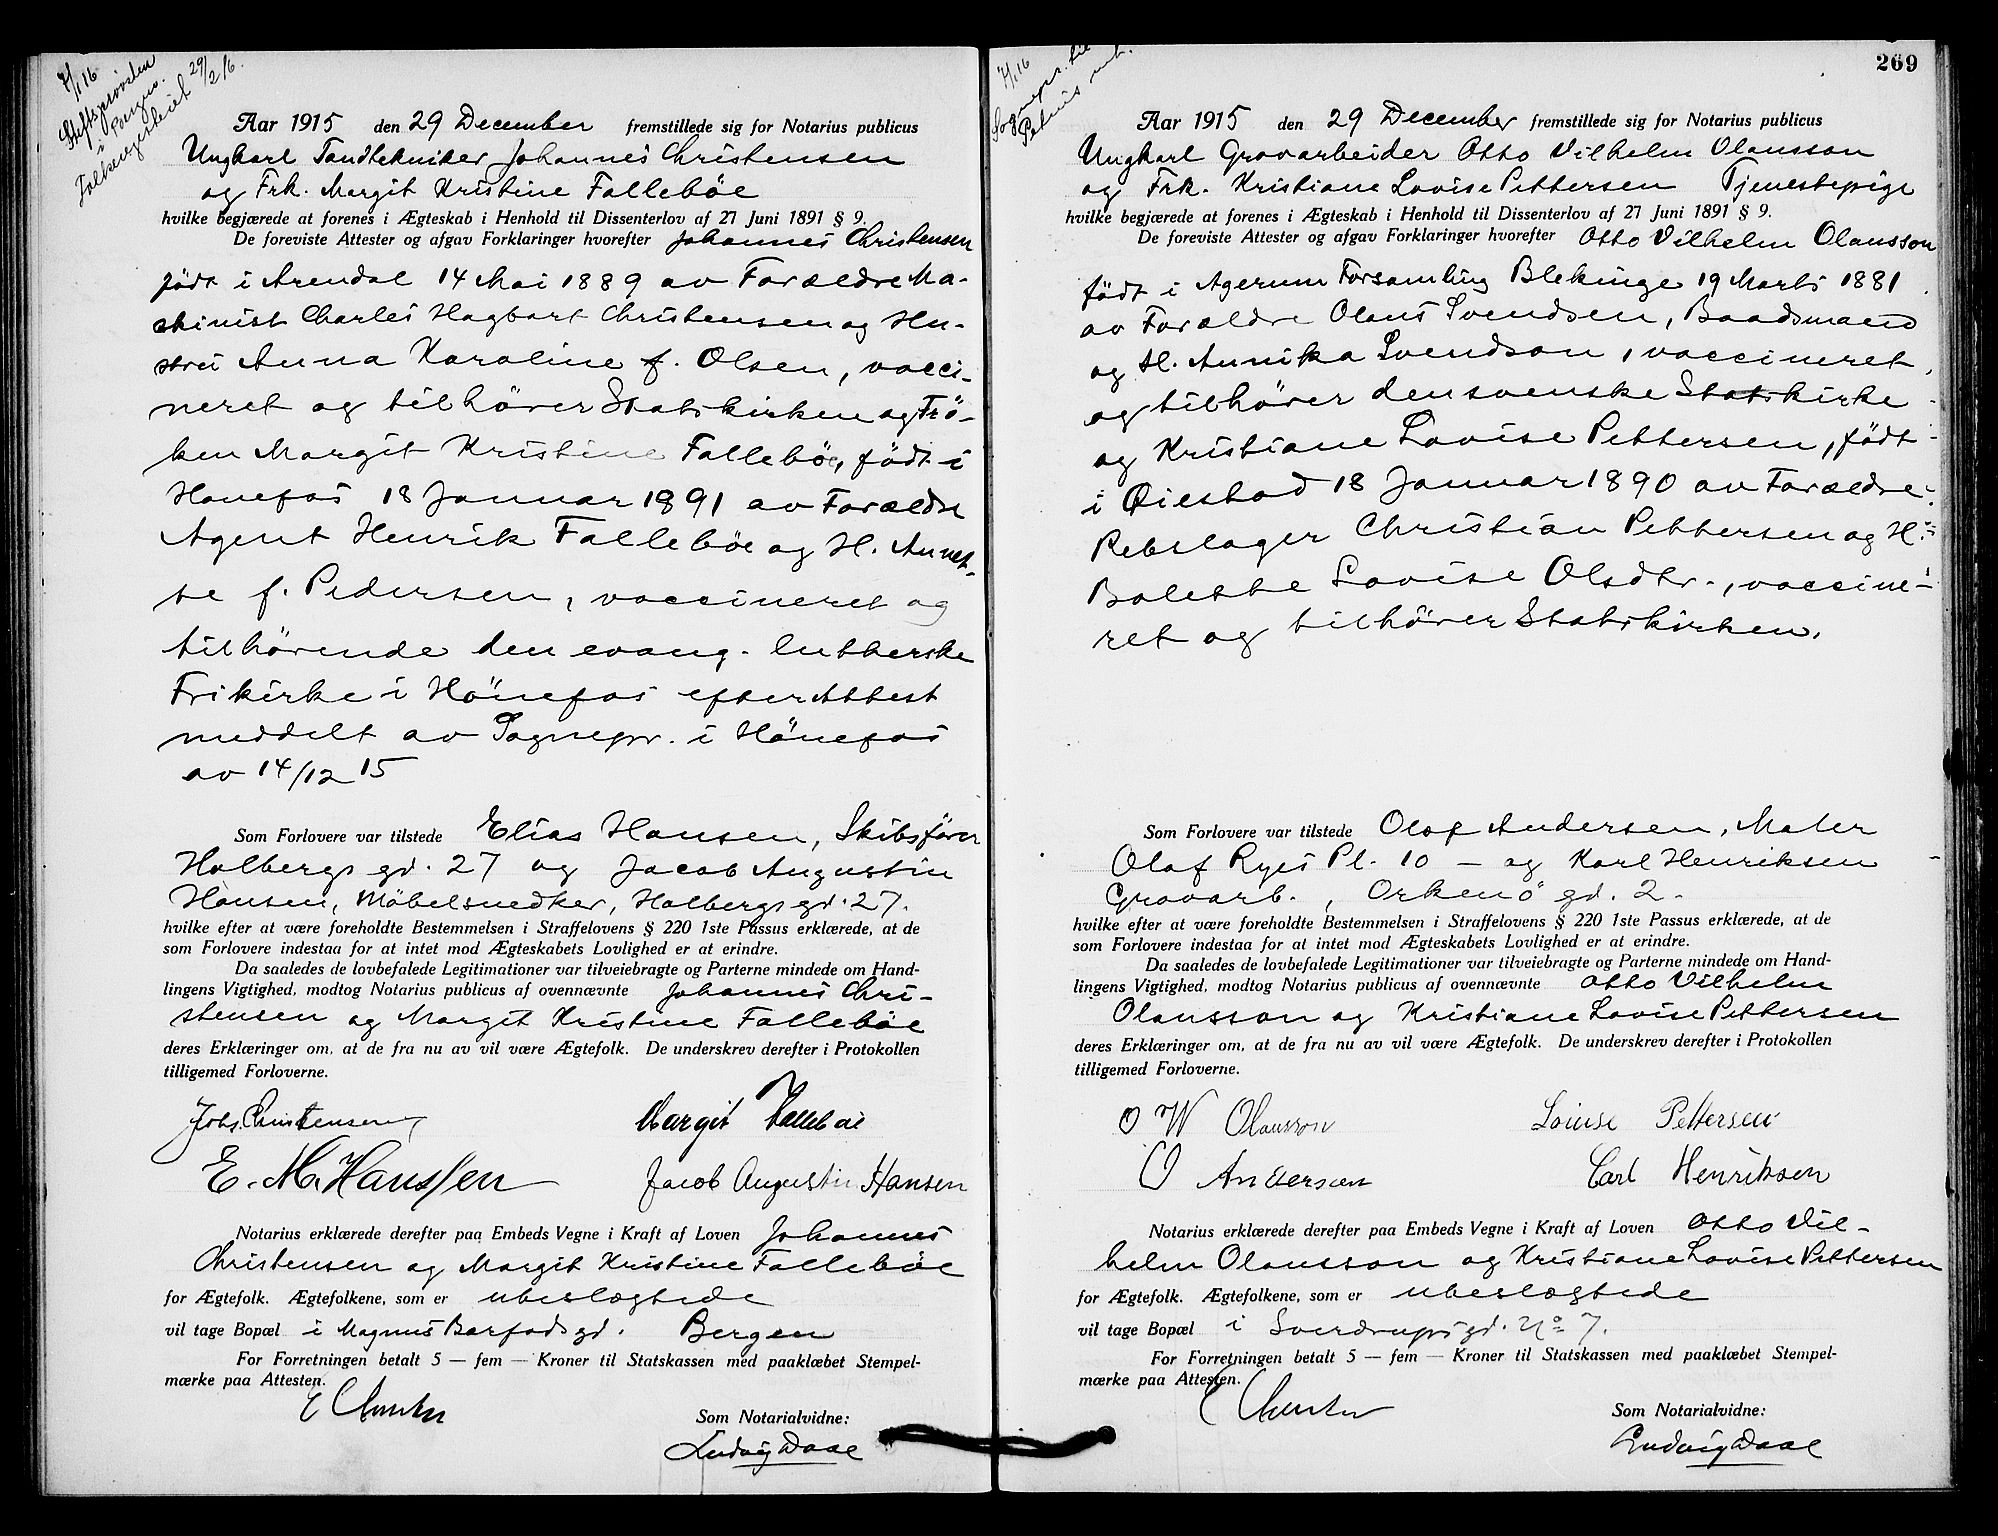 7/1 16
Stiftsprovsten
i Bergen.
Folkeregisteriet 29/2 16.
Aar 1915 den 29 December fremstillede sig for Notarius publicus
Ungkarl Tandtekniker Johannes Christensen
og Frk. Margit Kristine Falleböe
hvilke begjærede at forenes i Ægteskab i Henhold til Dissenterlov af 27 Juni 1891 § 9.
De foreviste Attester og afgav Forklaringer hvorefter Johannes Christensen
född i Arendal 14 Mai 1889 av Forældre Ma-
skinist Charles Hagbart Christensen og Hu-
stru Anna Karoline f. Olsen, vacci-
neret og tilhörer Statskirken og Frö-
ken Margit Kristine Falleböe, födt i
Hönefos 18 Januar 1891 av Forældre
Agent Henrik Falleböe og H. Annet-
te f. Pedersen, vaccineret og
tilhörende den evang. lutherske
Frikirke i Hönefos efter Attest
meddelt av Sognepr. i Hönefos
av 14/12 15
Som Forlovere var tilstede Elias Hansen, Skibsförer
Holbergs gd. 27 og Jacob Augustin
Hansen, Möbelsnedker, Holbergs gd. 27.
hvilke efter at være foreholdte Bestemmelsen i Straffelovens § 220 1ste Passus erklærede, at de
som Forlovere indestaa for at intet mod Ægteskabets Lovlighed er at erindre.
Da saaledes de lovbefalede Legitimationer var tilveiebragte og Parterne mindede om Hand-
lingens Vigtighed, modtog Notarius publicus af ovennævnte Johannes Chri-
stensen og Margit Kristine Falleböe
deres Erklæringer om, at de fra nu av vil være Ægtefolk. De underskrev derefter i Protokollen
tilligemed Forloverne.
Johs. Christensen Margit Fallebøe
E. M. Hanssen Jacob Augustin Hansen
Notarius erklærede derefter paa Embeds Vegne i Kraft af Loven Johannes
Christensen og Margit Kristine Falleböe
for Ægtefolk. Ægtefolkene, som er ubeslægtede
vil tage Bopæl i Magnus Barfods gd. Bergen
For Forretningen betalt 5 — fem — Kroner til Statskassen med paaklæbet Stempel-
mærke paa Attesten.
Som Notarialvidne:
Ludvig Daae
269
7/1 16
Sognepr. til
Petrus mt.
Aar 1915 den 29 December fremstillede sig for Notarius publicus
Ungkarl Gravarbeider Otto Vilhelm Olausson
og Frk. Kristiane Lovise Pettersen Tjenestepige
hvilke begjærede at forenes i Ægteskab i Henhold til Dissenterlov af 27 Juni 1891 § 9.
De foreviste Attester og afgav Forklaringer hvorefter Otto Vilhelm Olausson
födt i Agerum Forsamling Blekinge 19 Marts 1881
av Forældre Olaus Svendsen, Baadsmand
og H. Annika Svendson, vaccineret
og tilhörer den svenske Statskirke
og Kristiane Lovise Pettersen, födt
i Øiestad 18 Januar 1890 av Forældre
Rebslager Christian Pettersen og H.
Bolette Lovise Olsdtr., vaccine-
ret og tilhörer Statskirken.
Som Forlovere var tilstede Olof Andersen, Maler
Olaf Ryes Pl. 10 — og Karl Henriksen
Gravarb., Orkenö gd. 2.
hvilke efter at være foreholdte Bestemmelsen i Straffelovens § 220 1ste Passus erklærede, at de
som Forlovere indestaa for at intet mod Ægteskabets Lovlighed er at erindre.
Da saaledes de lovbefalede Legitimationer var tilveiebragte og Parterne mindede om Hand-
lingens Vigtighed, modtog Notarius publicus af ovennævnte Otto Vilhelm
Olausson og Kristiane Lovise Pettersen
deres Erklæringer om, at de fra nu av vil være Ægtefolk. De underskrev derefter i Protokollen
tilligemed Forloverne.
O W Olausson Louise Pettersen
O Andersen Carl Henrikson
Notarius erklærede derefter paa Embeds Vegne i Kraft af Loven Otto Vil-
helm Olausson og Kristiane Lovise Pettersen
for Ægtefolk. Ægtefolkene, som er ubeslægtede
vil tage Bopæl i Sverdrups gd. No 7.
For Forretningen betalt 5 — fem — Kroner til Statskassen med paaklæbet Stempel-
mærke paa Attesten.
Som Notarialvidne:
Ludvig Daae